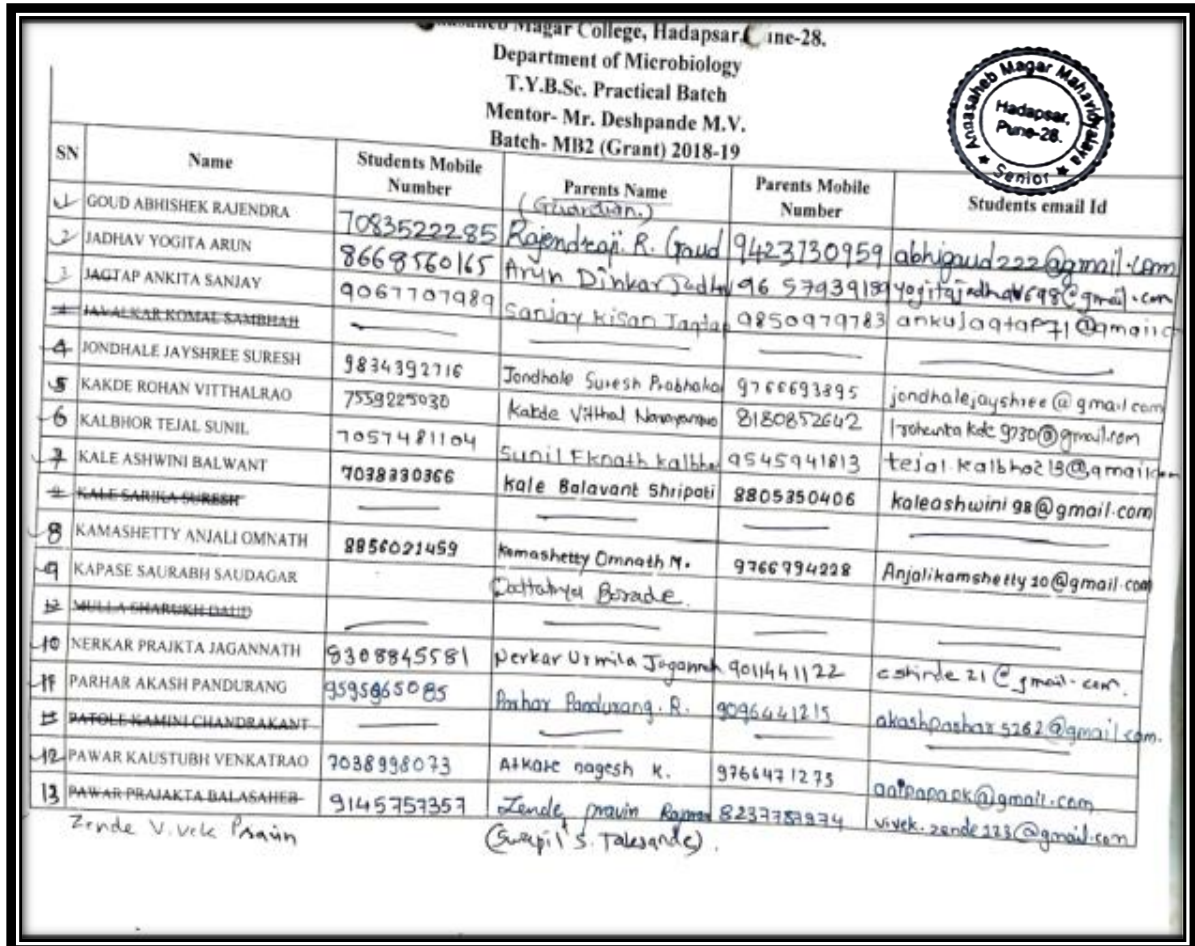 Magar College, Hadapsar, une-28.
Department of Microbiology
T.Y.B.Sc. Practical Batch
Mentor- Mr. Deshpande M.V.
Batch- MB2 (Grant) 2018-19
Annasaheb Magar Mahavidyalaya
Hadapsar,
Pune-28.
Senior
SN Name Students Mobile Number Parents Name (Guardian.) Parents Mobile Number Students email Id
1 GOUD ABHISHEK RAJENDRA 7083522285 Rajendraji. R. Gaud 9423730959 abhigaud222@gmail.com
2 JADHAV YOGITA ARUN 8668560165 Arun Dinkar Jadha 9657939189 yogitajadhav698@gmail.com
3 JAGTAP ANKITA SANJAY 9067707989 Sanjay Kisan Jagtap 9850979783 ankujagtap71@gmail.c
4 JAVALKAR KOMAL SAMBHAJI
4 JONDHALE JAYSHREE SURESH 9834392716 Jondhale Suresh Prabhaka 9766693895 jondhalejayshree@gmail.com
5 KAKDE ROHAN VITTHALRAO 7559225030 Kakde Vitthal 8180852642
6 KALBHOR TEJAL SUNIL 7057481104 Sunil Eknath Kalbho 9545941813
7 KALE ASHWINI BALWANT 7038330366 Kale Balavant Shripati 8805350406 kaleashwini98@gmail.com
KALE SARIKA SURESH
8 KAMASHETTY ANJALI OMNATH 8856021459 Kamashetty Omnath M. 9766794228 Anjalikamshetty20@gmail.com
9 KAPASE SAURABH SAUDAGAR Borade.
12 MULLA SHARUKH DAUD
10 NERKAR PRAJKTA JAGANNATH 9308845581 Nerkar Urmila Jagannah 9011441122 cshirde21@gmail.com.
11 PARHAR AKASH PANDURANG 9595965085 Parhar Pandurang. R. 9096441215 akashparhar5262@gmail.com.
15 PATOLE KAMINI CHANDRAKANT
12 PAWAR KAUSTUBH VENKATRAO 7038998073 Atkare nagesh K. 9766471275
13 PAWAR PRAJAKTA BALASAHEB 9145757357 Zende pravin 8237787974 vivek.zende123@gmail.com
Zende Vivek Pravin (Swapnil S. Taksande).